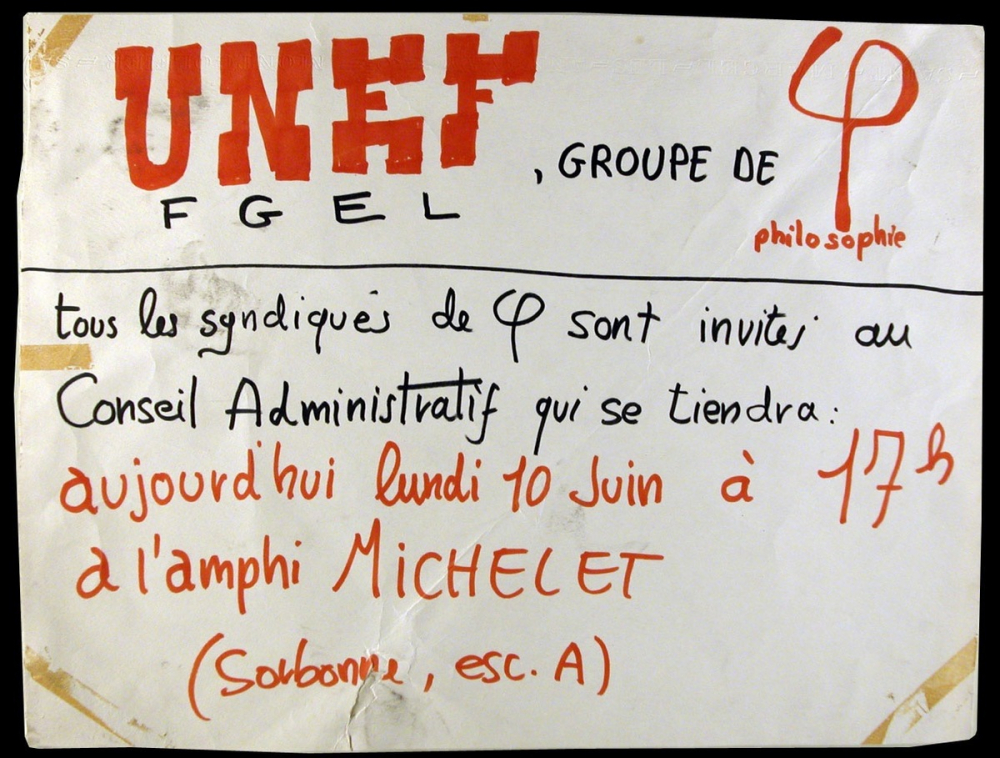 UNEF, GROUPE DE φ
FGEL
philosophie
tous les syndiqués de φ sont invités au
Conseil Administratif qui se tiendra:
aujourd'hui lundi 10 Juin à 17h
a l'amphi MiCHELET
(Sorbonne, esc. A)